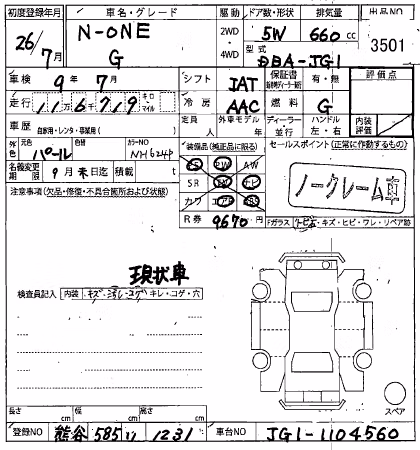 初度登録年月 車名・グレード 駆動 ドア数・形状 排気量 出品NO
26/7月 N-ONE G 2WD 4WD 5W 660 cc 3501
型式 DBA-JG1
車検 9年7月 シフト IAT 保証書 有・無 評価点
走行 11万6千719 キロ・マイル 冷房 AAC 燃料 G
車歴 自家用・レンタ・事業用( ) 定員 人 外車モデル 年 ディーラー 並行 ハンドル 左・右 内装評価
外色 元色 パール カラーNO NH624P 装備品(純正品に限る) セールスポイント(正常に作動するもの)
名義変更期限 9月末日迄 積載 t PS PW AW
注意事項(欠品・修復・不具合箇所および状態) SR ナビ ノークレーム車
カワ エアB ABS
R券 9670円 Fガラス トビ石・キズ・ヒビ・ワレ・リペア跡
現状車
検査員記入 内装 キズ・汚レ・コゲ・キレ・コゲ・穴
スペア
長さ cm 幅 cm 高さ cm
登録NO 熊谷 585 い 1231 車台NO JG1-1104560